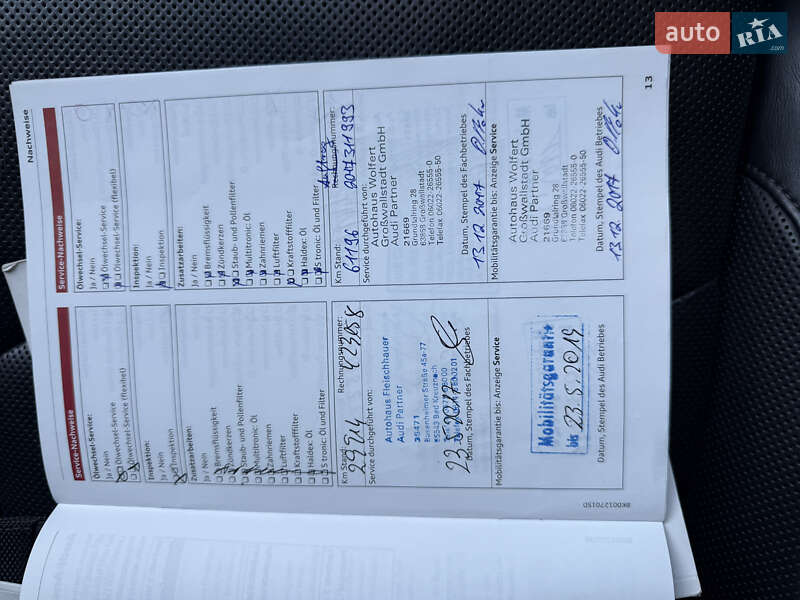 auto RIA.com
Nachweise
Service-Nachweise
Ölwechsel-Service:
Ja / Nein
Ölwechsel-Service
Ölwechsel-Service (flexibel)
Inspektion:
Ja / Nein
Inspektion
Zusatzarbeiten:
Ja / Nein
Bremsflüssigkeit
Zündkerzen
Staub- und Pollenfilter
Multitronic: Öl
Zahnriemen
Luftfilter
Kraftstofffilter
Haldex: Öl
S tronic: Öl und Filter
Km Stand: Rechnungsnummer:
29214 423058
Service durchgeführt von:
Autohaus Fleischhauer
Audi Partner
35471
Bosenheimer Straße 45a-77
55543 Bad Kreuznach
23.5.2017
Datum, Stempel des Fachbetriebes
Mobilitätsgarantie bis: Anzeige Service
Mobilitätsgarantie
bis 23.5.2019
Datum, Stempel des Audi Betriebes
Service-Nachweise
Ölwechsel-Service:
Ja / Nein
Ölwechsel-Service
Ölwechsel-Service (flexibel)
Inspektion:
Ja / Nein
Inspektion
Zusatzarbeiten:
Ja / Nein
Bremsflüssigkeit
Zündkerzen
Staub- und Pollenfilter
Multitronic: Öl
Zahnriemen
Luftfilter
Kraftstofffilter
Haldex: Öl
S tronic: Öl und Filter
Km Stand: Rechnungsnummer:
61196
Service durchgeführt von:
Autohaus Wolfert
Großwallstadt GmbH
Audi Partner
21669
Grundtalring 28
63868 Großwallstadt
Telefon 06022-26555-0
Telefax 06022-26555-50
Datum, Stempel des Fachbetriebes
13.12.2017
Mobilitätsgarantie bis: Anzeige Service
Autohaus Wolfert
Großwallstadt GmbH
Audi Partner
21669
Grundtalring 28
63868 Großwallstadt
Telefon 06022-26555-0
Telefax 06022-26555-50
Datum, Stempel des Audi Betriebes
13.12.2017
8KD012701SD
13